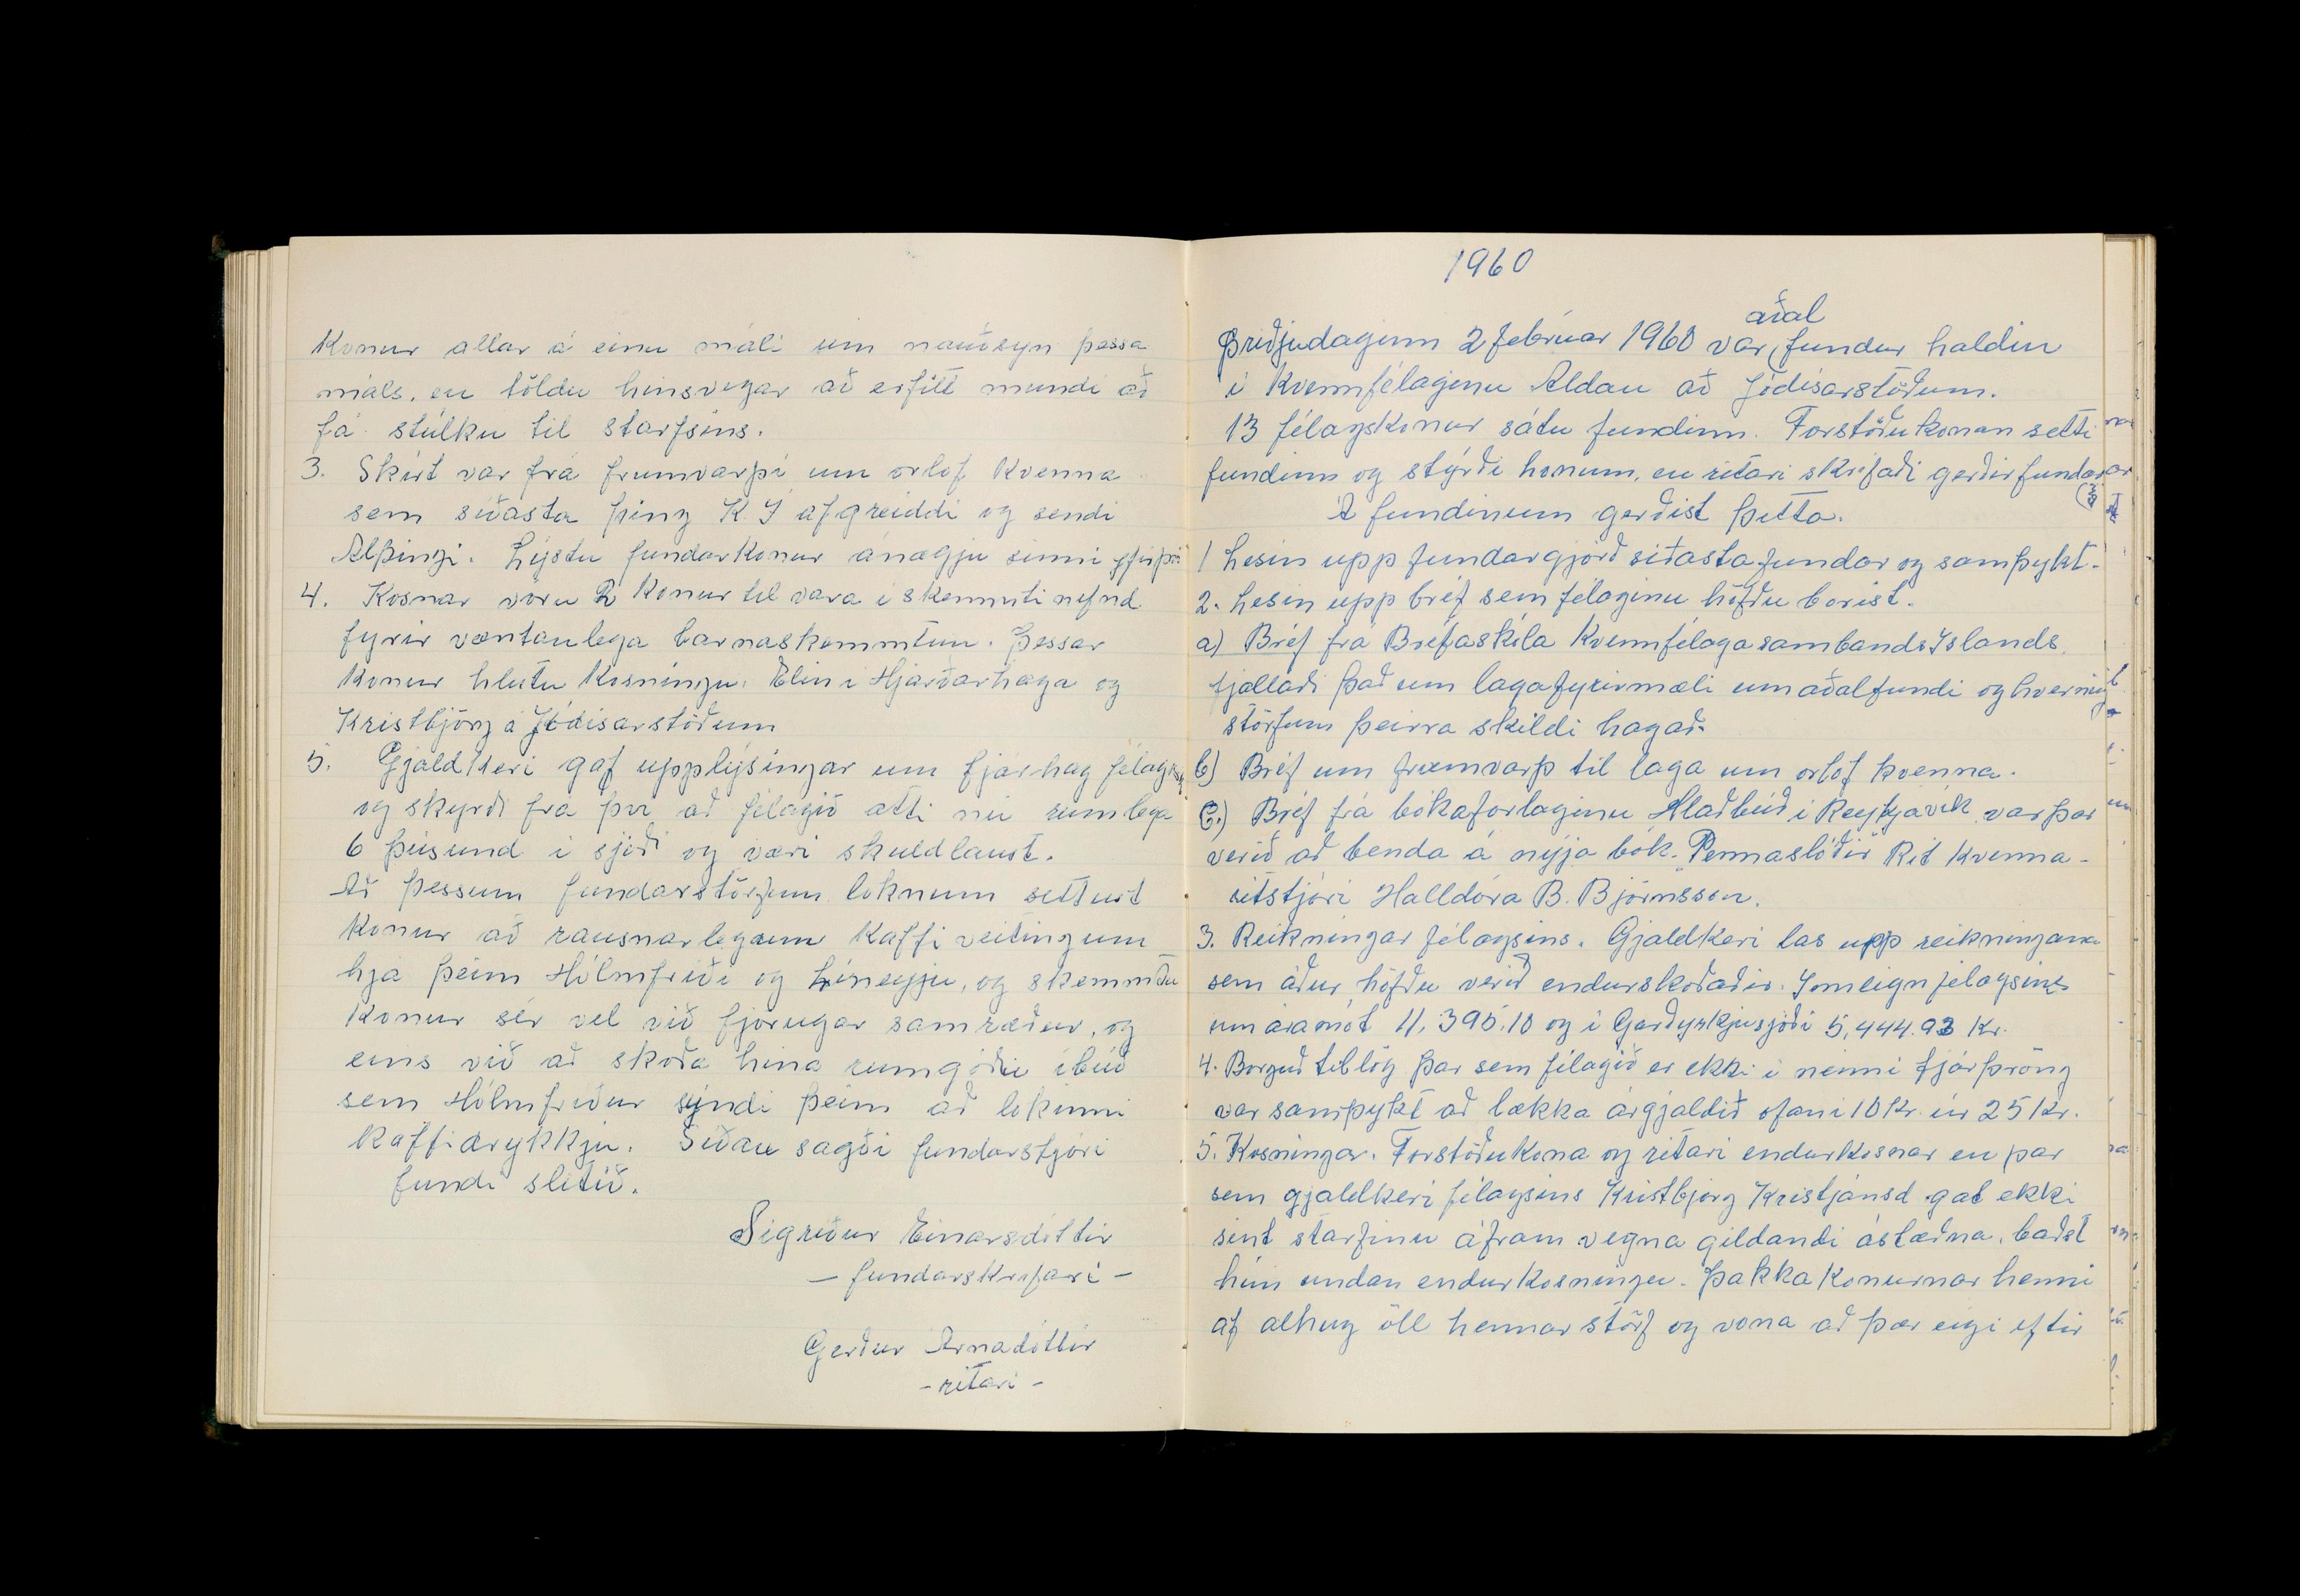 Konur allar á einu máli um nauðsyn þessa
máls, en töldu hinsvegar að erfitt mundi að
fá stúlku til starfsins.
3. Skírt var frá frumvarpi um orlof kvenna
sem síðasta þing K.Í afgreiddi og sendi
Alþingi. Lýstu fundarkonur ánægju sinni yfir því
4. Kosnar voru 2 konur til vara í skemmtinefnd
fyrir væntanlega barnaskemmtun. Þessar
konur hlutu kosningu. Elín í Hjarðarhaga og
Kristbjörg á Jódísarstöðum
5. Gjaldkeri gaf upplýsingar um fjárhag félagsins
og skyrði frá því að félagið ætti nú rúmlega
6 þúsund í sjóði og væri skuldlaust.
Að þessum fundarstörfum loknum settust
konur að rausnarlegum kaffiveitingum
hjá þeim Hólmfríði og Líneyju, og skemmtu
konur sér vel við fjörugar samræður, og
eins við að skoða hina rumgóðu íbúð
sem Hólmfríður sýndi þeim að lokinni
kaffidrykkju. Síðan sagði fundarstjóri
fundi slitið.
Sigríður Einarsdóttir
- fundarskrifari -
Gerður Arnadóttir
- ritari -
1960
aðal
Þriðjudaginn 2 febrúar 1960 var fundur haldin
í Kvennfélaginu Aldan að Jódísarstöðum.
13 félagskonur sátu fundinn. Forstöðukonan setti
fundinn og stýrði honum, en ritari skrifaði gerðir fundar
Á fundinum gerðist þetta.
1 Lesin upp fundargjörð síðasta fundar og samþykt.
2. Lesin upp bréf sem félaginu höfðu borist.
a) Bréf frá Bréfaskóla Kvennfélagasambands Íslands
fjallaði það um lagafyrirmæli um aðalfundi og hvernig
störfum þeirra skildi hagað.
b) Bréf um frumvarp til laga um orlof kvenna.
C.) Bréf frá bókaforlaginu Hlaðbúð í Reykjavík var þar
verið að benda á nýja bók. "Pennaslóðir" Rit kvenna -
ritstjóri Halldóra B. Björnsson.
3. Reikningar félagsins. Gjaldkeri las upp reikningana
sem áður höfðu verið endurskoðaðir. Inneign félagsins
um áramót 11,395.10 og í Garðyrkjusjóði 5,444.93 Kr.
4. Borguð tillög þar sem félagið er ekki í neinni fjárþröng
var samþykt að lækka árgjaldið ofan í 10 Kr. úr 25 Kr.
5. Kosningar. Forstöðukona og ritari endurkosnar en þar
sem gjaldkeri félagsins Kristbjörg Kristjánsd gat ekki
sint starfinu áfram vegna gildandi ástæðna, baðst
hún undan endurkosningu. Þakka konurnar henni
af alhug öll hennar störf og vona að þær eigi eftir